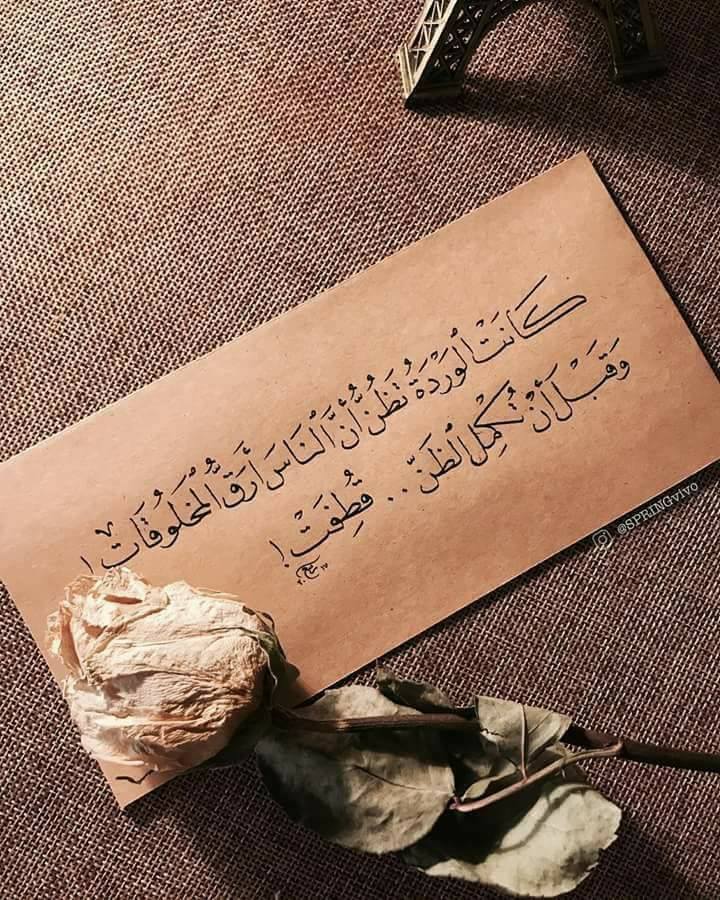 كَانَتْ ٱلْوَرْدَةُ تَظُنُّ أَنَّ ٱلنَّاسَ أَرَقُّ ٱلْمَخْلُوقَاتِ!
وَقَبْلَ أَنْ تُكْمِلَ ٱلظَّنَّ .. قُطِفَتْ!
@SPRINGvivo